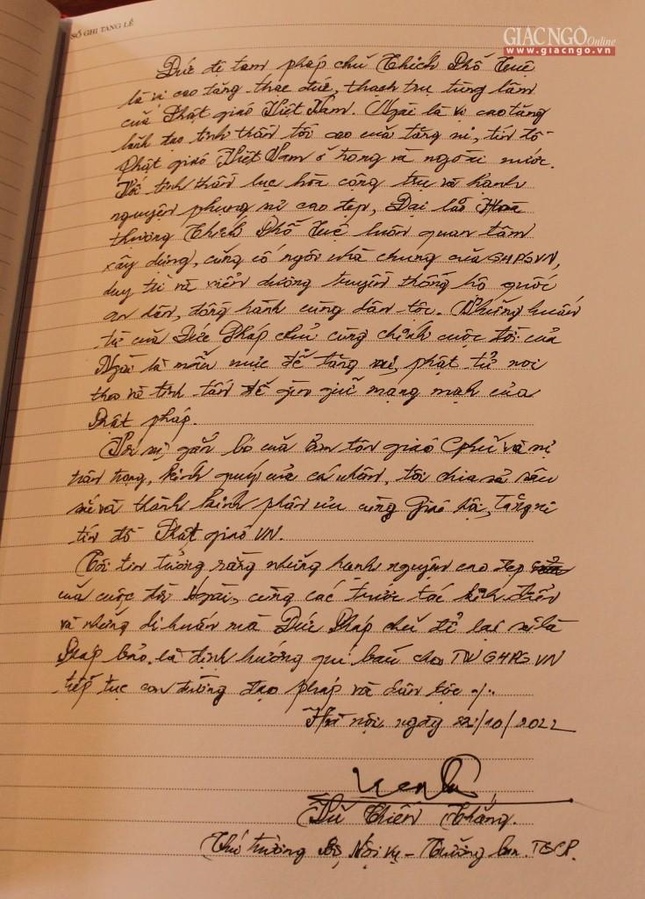 SỔ GHI TANG LỄ
GIÁC NGỘ Online
www.giacngo.vn
Đức đệ tam pháp chủ Thích Phổ Tuệ
là vị cao tăng thạc đức, thạch trụ tùng lâm
của Phật giáo Việt Nam. Ngài là vị cao tăng
lãnh đạo tinh thần tối cao của tăng ni, tín đồ
Phật giáo Việt Nam ở trong và ngoài nước.
Với tinh thần lục hòa cộng trụ và hạnh
nguyện phụng sự cao đẹp, Đại lão Hòa
thượng Thích Phổ Tuệ luôn quan tâm
xây dựng, củng cố ngôi nhà chung của GHPGVN,
duy trì và xiển dương truyền thống hộ quốc
an dân, đồng hành cùng dân tộc. Những huấn
từ của Đức Pháp chủ cùng chính cuộc đời của
Ngài là mẫu mực để tăng ni, phật tử noi
theo và tinh tấn để gìn giữ mạng mạch của
Phật pháp.
Với sự gắn bó của Ban tôn giáo Cphủ và sự
trân trọng, kính quý của cá nhân, tôi chia sẻ sâu
sắc và thành kính phân ưu cùng Giáo hội, Tăng ni
tín đồ Phật giáo VN.
Tôi tin tưởng rằng những hạnh nguyện cao đẹp
của cuộc đời Ngài, cùng các trước tác kinh điển
và những di huấn mà Đức Pháp chủ để lại sẽ là
Pháp bảo, là định hướng quí báu cho TW GHPGVN
tiếp tục con đường đạo pháp và dân tộc ./.
Hà nội, ngày 22/10/2021
Vũ Chiến Thắng
Thứ trưởng Bộ Nội vụ - Trưởng ban TGCP.